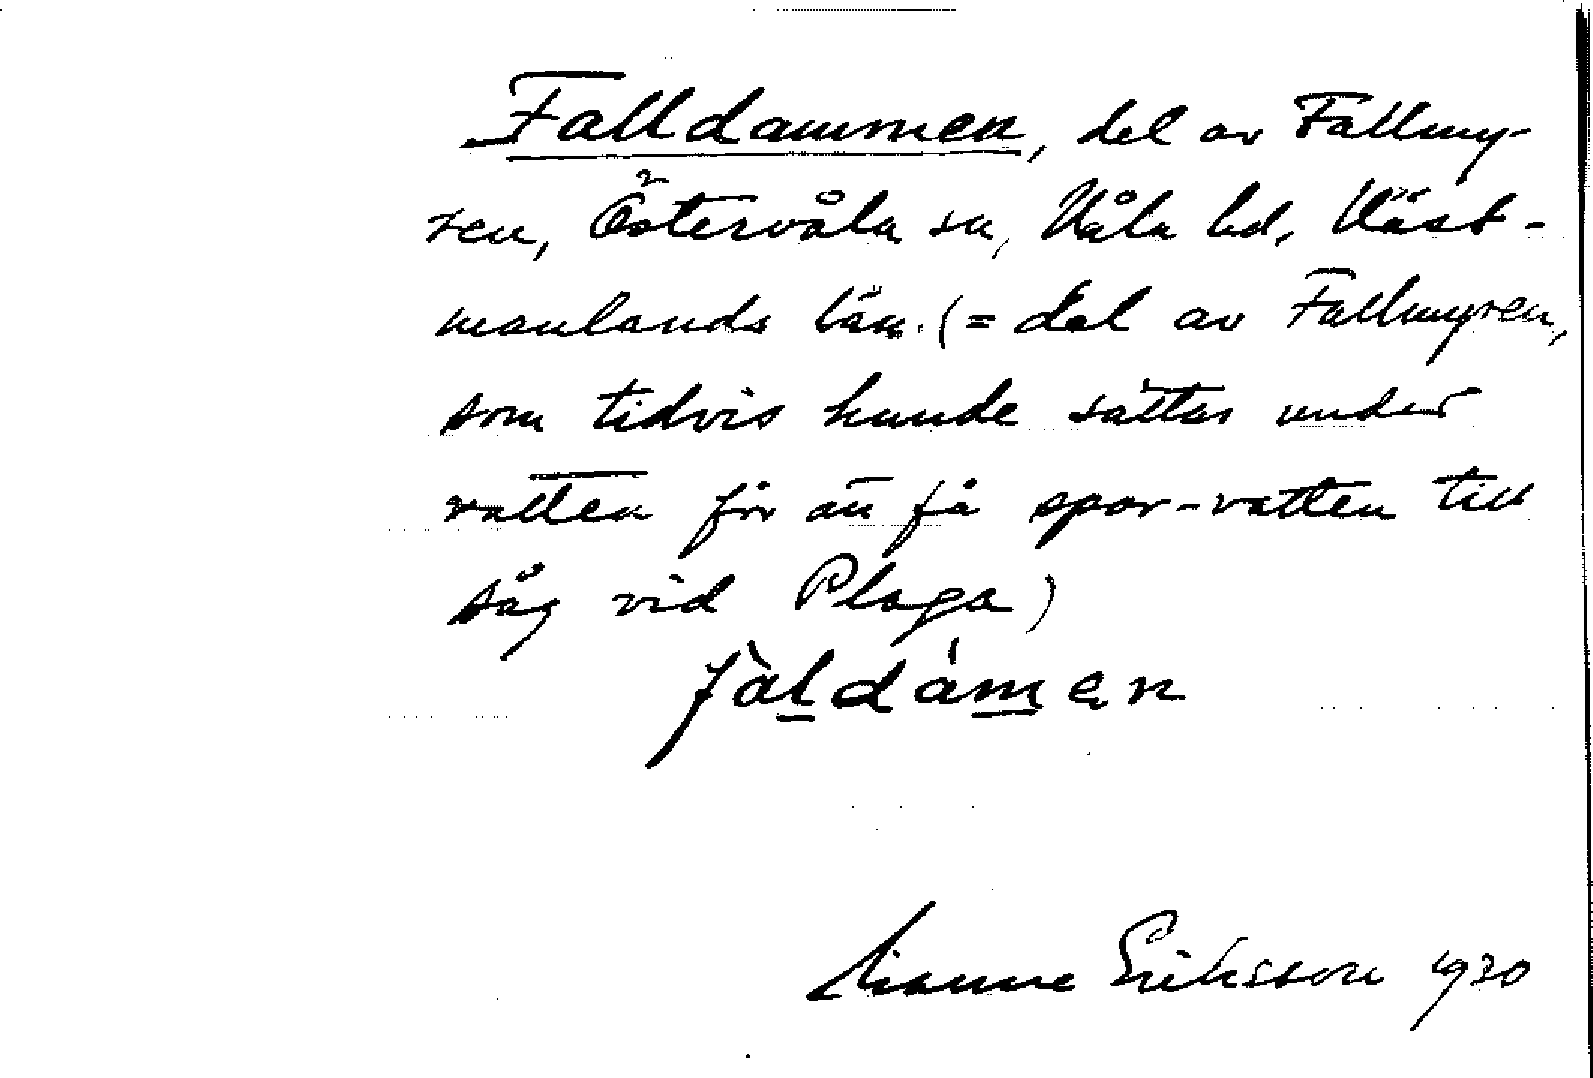 Falldammen, del av Fallmy-
ren, Östervåla sn, Våla hd, Väst-
manlands län. (= del av Fallmyren,
som tidvis kunde sättas under
vatten för att få spar-vatten till
såg vid Plaga)
fàldámen
Manne Eriksson 1930